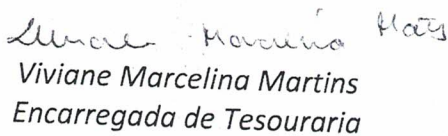 Viviane Marcelina Martins
Encarregada de Tesouraria